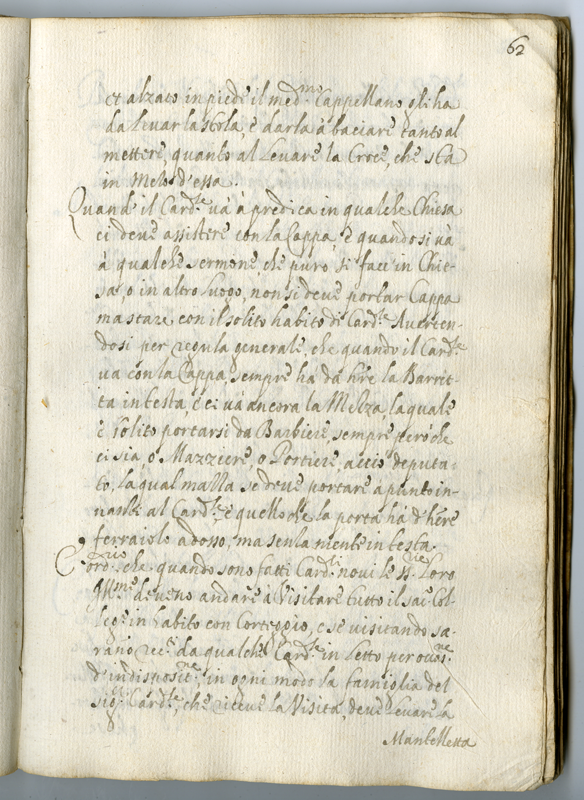 62
et alzato in piede il med.mo Cappellano gli ha
da levar la stola e darla à baciare tanto al
mettere, quanto al levare la Croce, che sta
in mezo d'essa.
Quand' il Card.le và a predica in qualche Chiesa
ci deve assistere con la Cappa, e quando si và
à qualche sermone, che pure si facc' in Chie-
sa, o in altro luogo, non si deve portar Cappa
ma stare con il solito habito di Card.le Averten-
dosi per regula generale, che quando il Card.le
và con la Cappa, sempre ha da h're la Barret-
ta in testa, e ci và ancora la Mazza, la quale
è solito portarsi da Barbiere, sempre però che
ci sia o Mazziere, o Portiere, acciò deputa-
to, la qual mazza se deve portare apunto in-
nanti al Card.le, e quello che la porta ha d' h're
ferraiolo adosso, ma senza niente in testa.
È ord.rio che quando sono fatti Card.li novi le SS.rie Loro
Ill.me devono andare à visitare tutto il sac. Col-
legio in habito con Corteggio, e se visitando sa-
rano rec.ti da qualche Card.le in letto per occas.ne
d'indisposit.ne, in ogni modo la famiglia del
sig.r Card.le, che riceve la Visita, deve levare la
Mantelletta